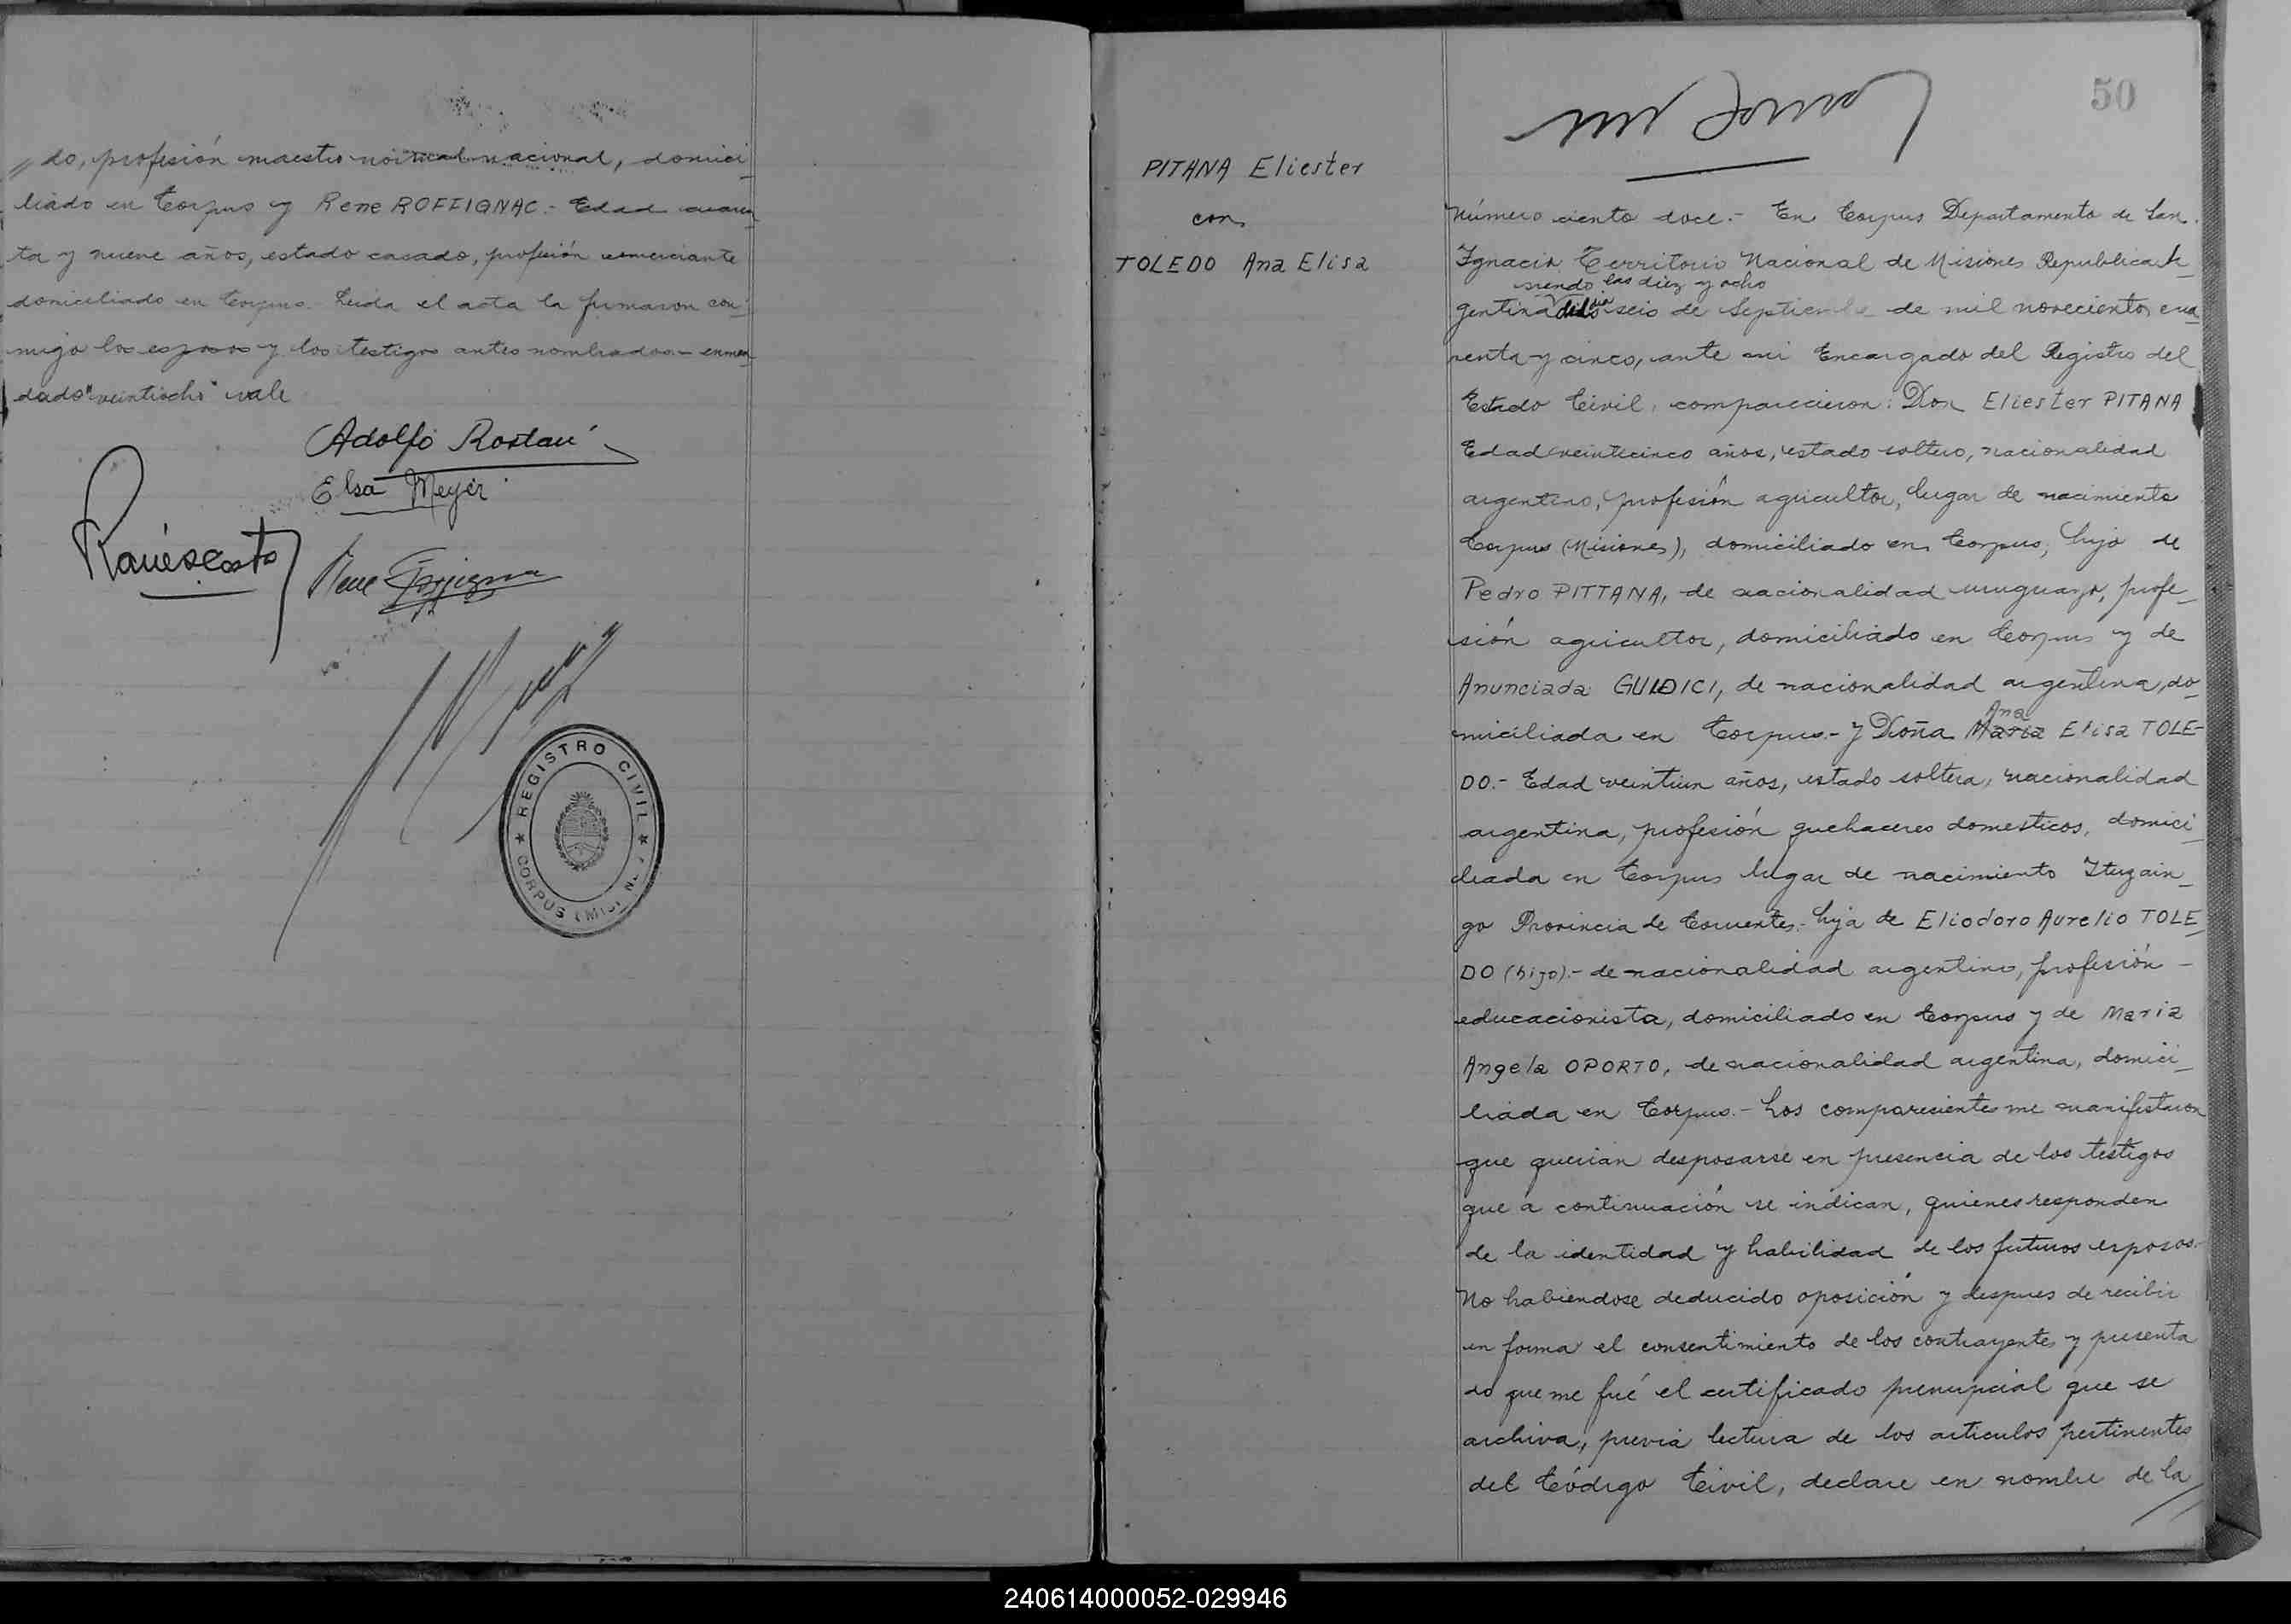 〃do, profesión maestro normal nacional, domici_
liado en Corpus y Rene ROFFIGNAC.- Edad cuaren_
ta y nueve años, estado casado, profesión comerciante
domiciliado en Corpus. Leida el acta la firmaron con_
migo los esposos y los testigos antes nombrados.- enmen_
dado "veintiocho" vale
Adolfo Rostan
Elsa Meyer
Rene
REGISTRO CIVIL
CORPUS (MIS)
50
PITANA Eliester
con
TOLEDO Ana Elisa
Número ciento doce.- En Corpus Departamento de San
Ignacio Territorio Nacional de Misiones Republica Ar_
siendo las diez y ocho
gentina dia seis de Septiembre de mil novecientos cua_
renta y cinco, ante mi Encargado del Registro del
Estado Civil, comparecieron: Don Eliester PITANA
Edad veinticinco años, estado soltero, nacionalidad
argentino, profesión agricultor, lugar de nacimiento
Corpus (Misiones), domiciliado en Corpus, hijo de
Pedro PITTANA, de nacionalidad uruguayo, profe_
sión agricultor, domiciliado en Corpus y de
Anunciada GUIDICI, de nacionalidad argentina, do_
Ana
miciliada en Corpus.- y Doña Maria Elisa TOLE-
DO.- Edad veintiun años, estado soltera, nacionalidad
argentina, profesión quehaceres domesticos, domici_
liada en Corpus lugar de nacimiento Ituzain_
go Provincia de Corrientes.- hija de Eliodoro Aurelio TOLE_
DO (hijo).- de nacionalidad argentino, profesión -
educacionista, domiciliado en Corpus y de Maria
Angela OPORTO, de nacionalidad argentina, domici_
liada en Corpus.- Los comparecientes me manifestaron
que querian desposarse en presencia de los testigos
que a continuación se indican, quienes responden
de la identidad y habilidad de los futuros esposos.-
No habiendose deducido oposición y despues de recibir
en forma el consentimiento de los contrayentes y presenta
do que me fué el certificado prenupcial que se
archiva, previa lectura de los articulos pertinentes
del Código Civil, declare en nombre de la
240614000052-029946